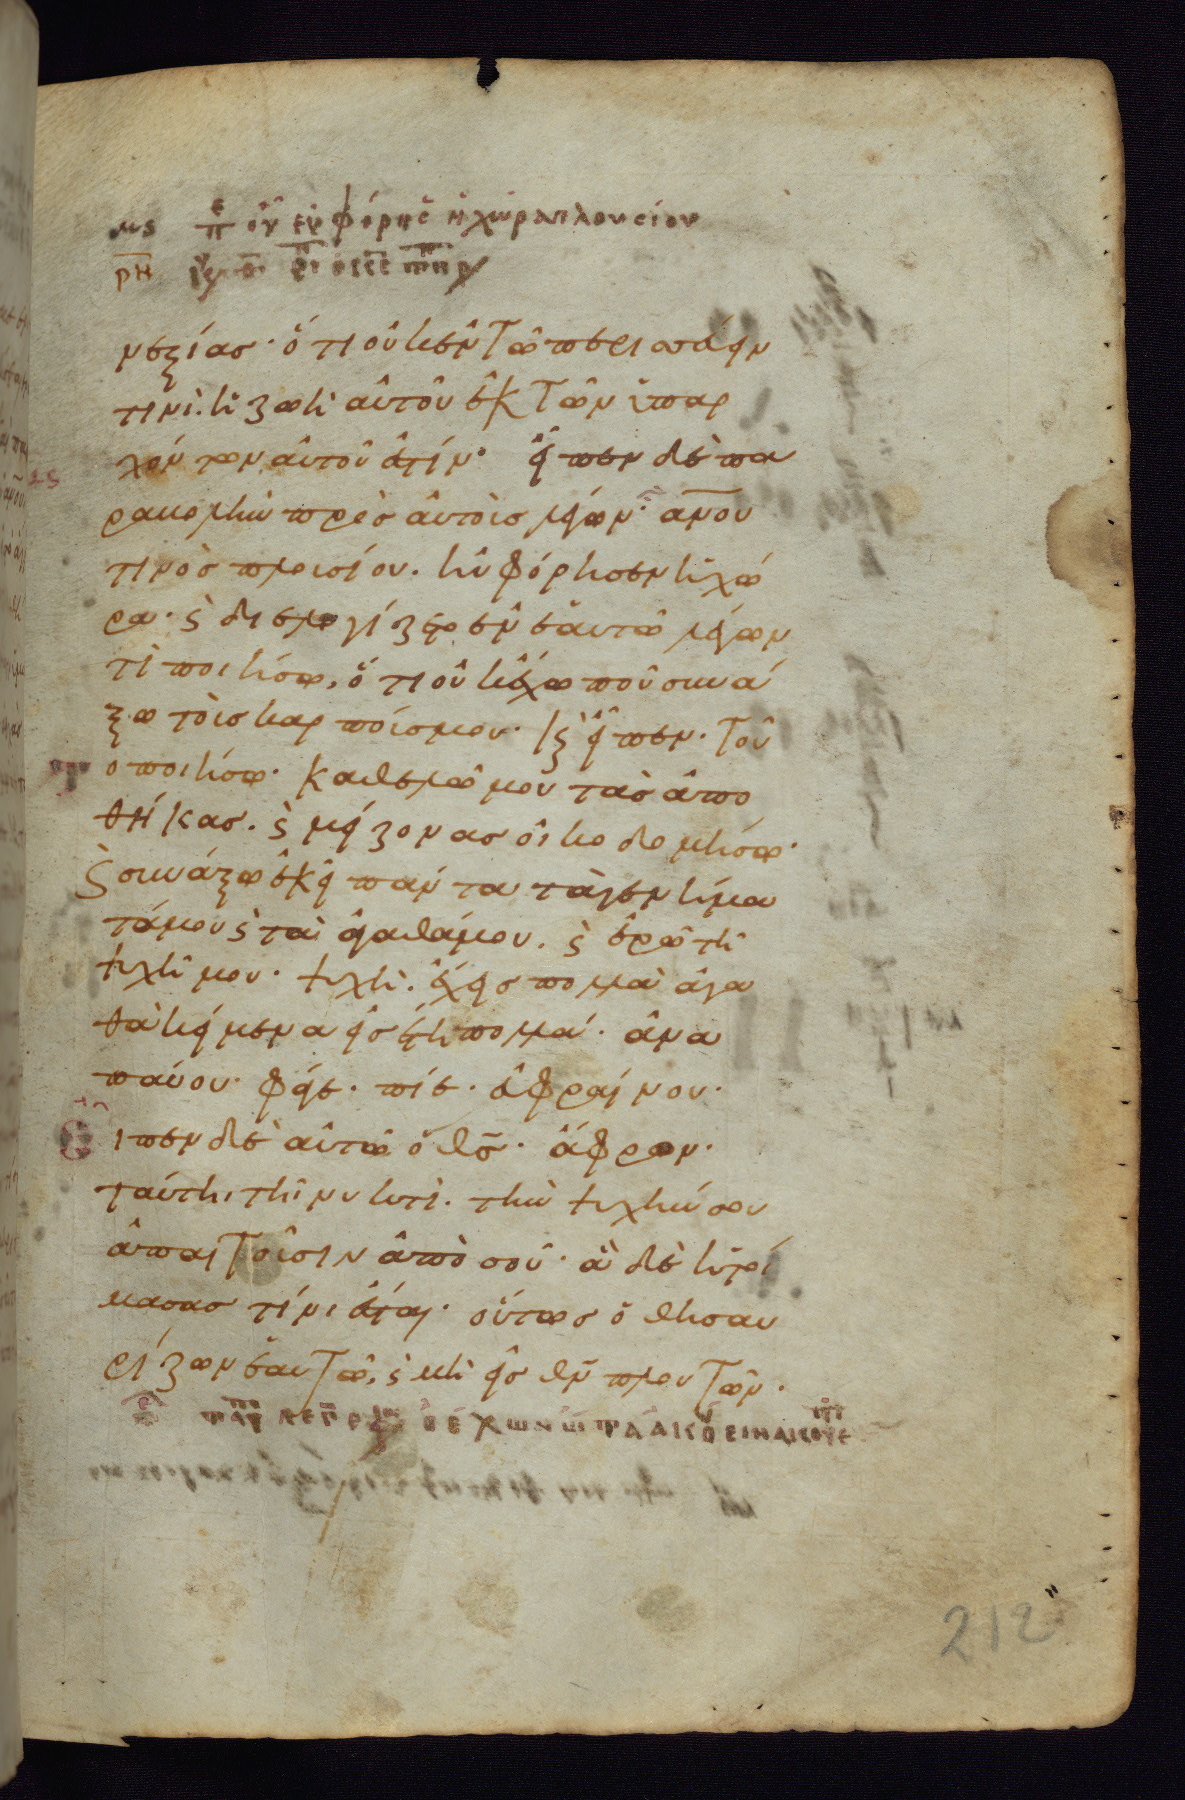 μϛ πε οὗ εὐφόρησ ἡ χώρα πλουσίου
ρη
νεξίασ· ὅτι οὐκ ἐν τῶ περισσεύειν
τινὶ. ἡ ζωὴ αὐτοῦ ἐκ τῶν ὑπαρ
χόντων αὐτοῦ ἐστίν· εἶπεν δὲ πα
ραβολὴν πρὸσ αὐτοὺσ λέγων· ανου
τινὸσ πλουσίου. ηὐφόρησεν ἡ χώ
ρα· ϛ διελογίζετο ἐν ἑαυτῶ λέγων
τί ποιήσω, ὅτι οὐκ ἔχω ποῦ συνά
ξω τοὺσ καρπούσ μου· ϛ εἶπεν· τοῦ
το ποιήσω· καθελῶ μου τὰσ ἀπο
θήκασ. ϛ μείζονασ οἰκοδομήσω·
ϛ συνάξω ἐκεῖ πάντα τὰ γενήμα
τά μου ϛ τὰ ἀγαθά μου. ϛ ἐρῶ τῆ
ψυχῆ μου· ψυχὴ. ἔχεισ πολλὰ ἀγα
θὰ κείμενα εἰσ ἔτη πολλά· ἀνα
παύου· φάγε· πίε· εὐφραίνου·
Εἶπεν δὲ αὐτῶ ὁ θσ· ἄφρων·
ταύτη τῆ νυκτὶ. τὴν ψυχήν σου
ἀπαιτοῦσιν ἀπὸ σοῦ· ἃ δὲ ἡτοί
μασασ τίνι ἔσται· οὕτωσ ὁ θησαυ
ρίζων ἑαυτῶ, ϛ μὴ εἰσ θν πλουτῶν·
ὁ ἔχων ὦτα ἀκού
212